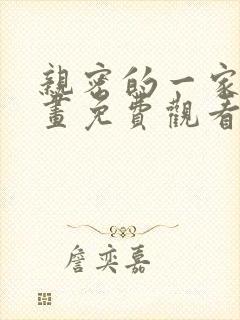 親密的一家
畫免費觀看
詹奕嘉